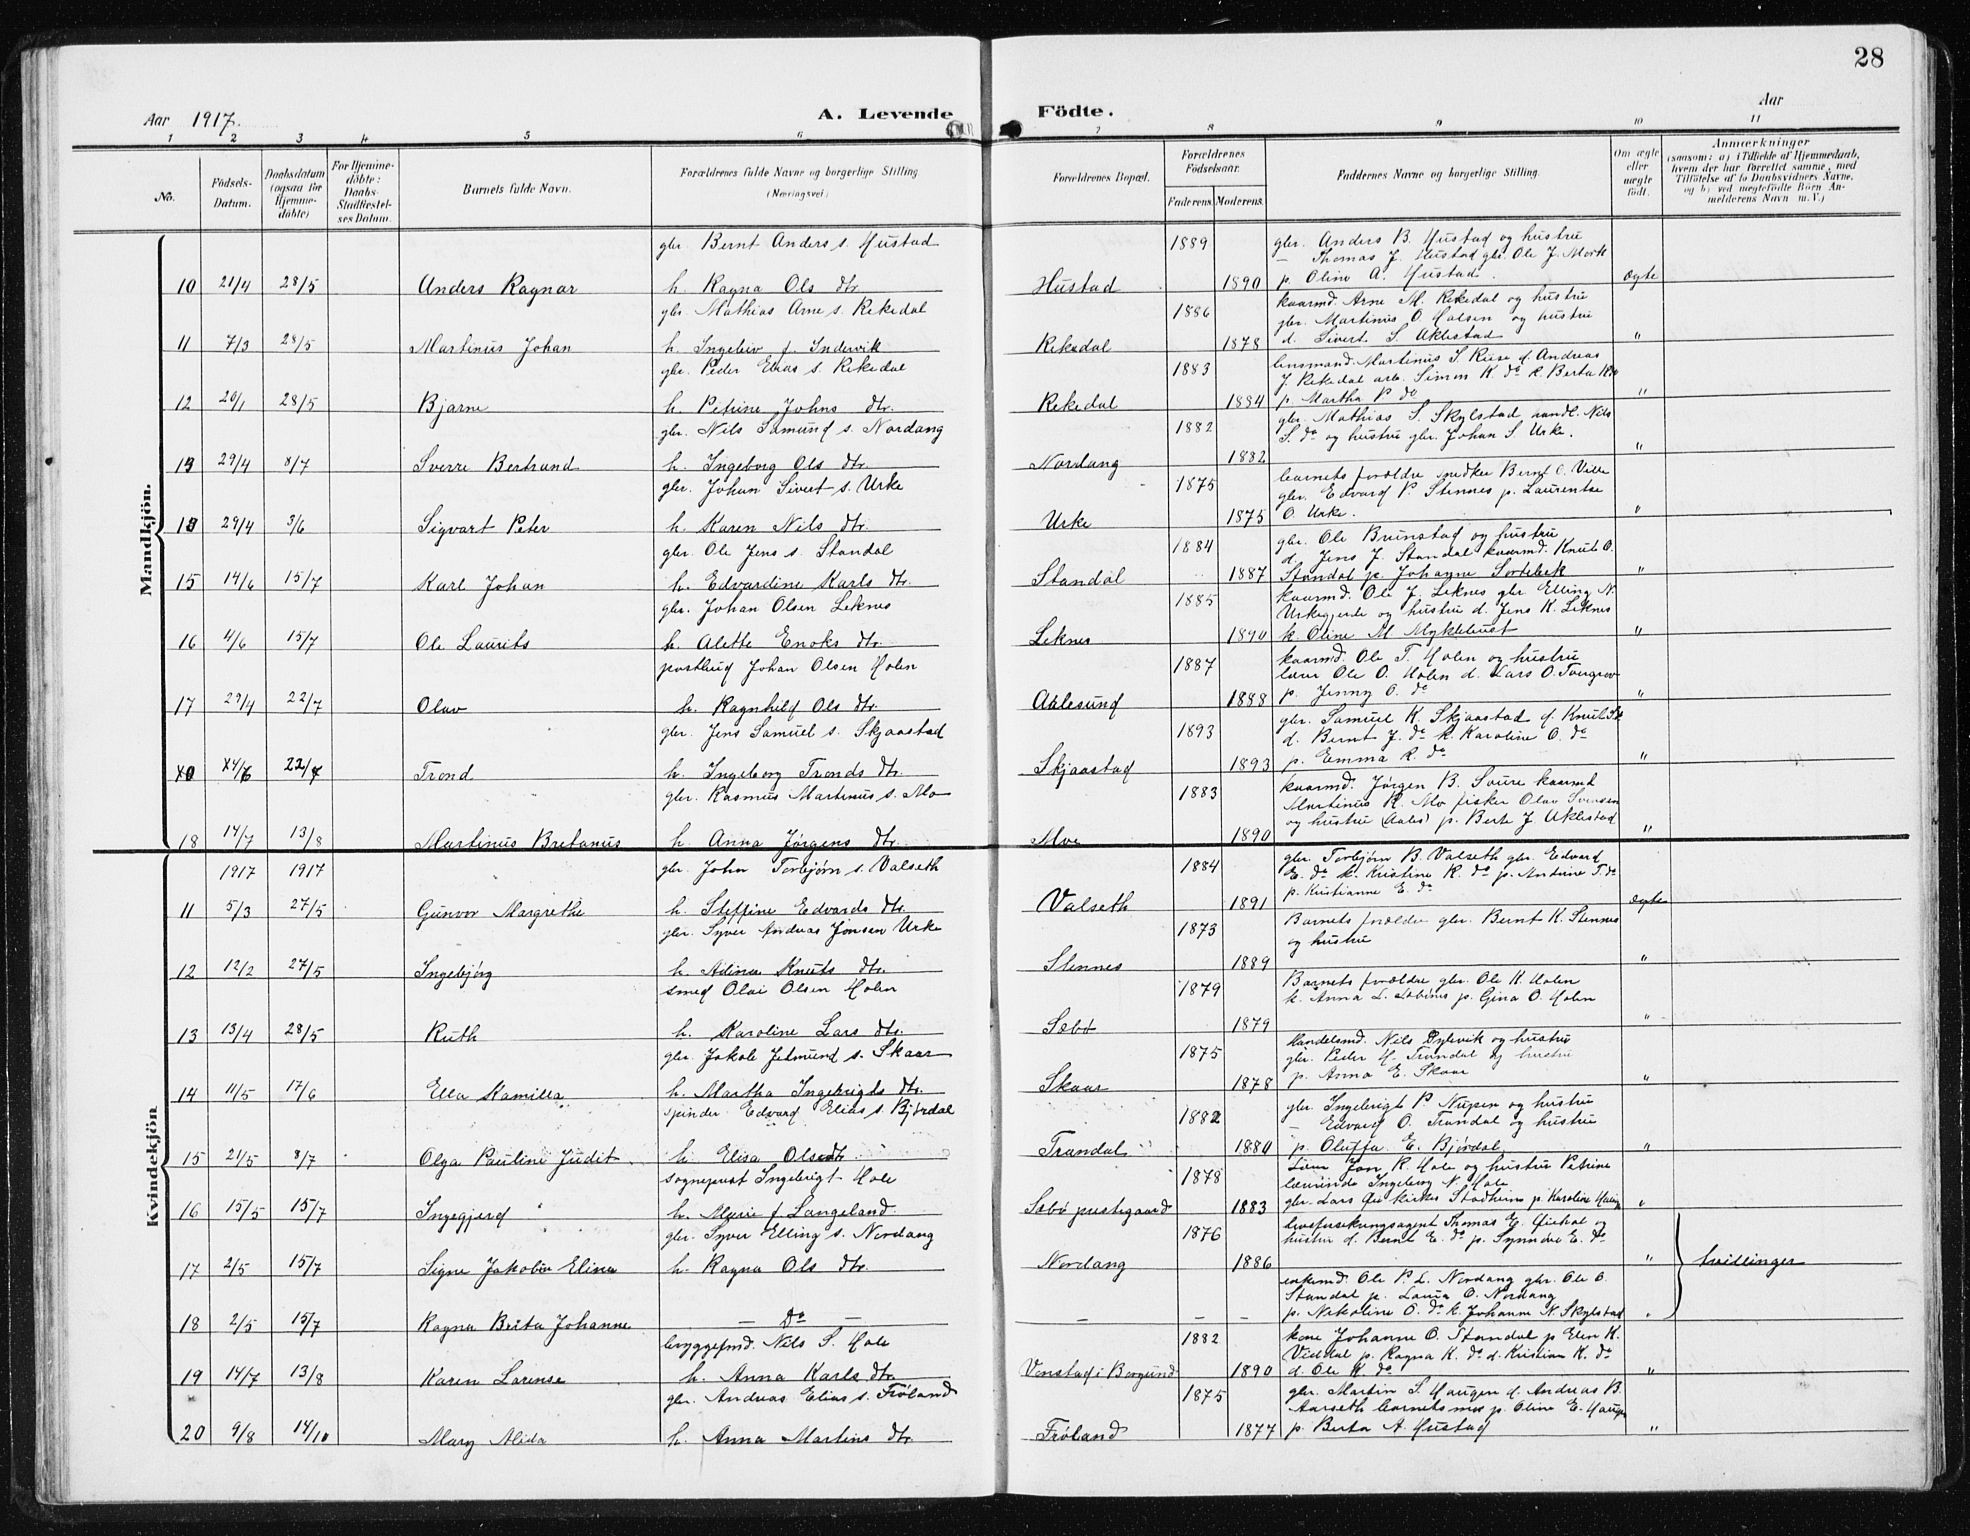 28
Aar 1917.
A. Levende Födte.
Aar
1 2 3 4 5 6 7 8 9 10 11
No.
Födsels-Datum.
Daabsdatum (ogsaa för Hjemmedöbte)
For Hjemmedöbte: Daabs-Stadfæstelses Datum.
Barnets fulde Navn.
Forældrenes fulde Navne og borgerlige Stilling (Næringsvei)
Forældrenes Bopæl.
Forældrenes Födselsaar.
Faderens. Moderens.
Faddernes Navne og borgerlige Stilling.
Om ægte eller uægte födt.
Anmærkninger
(saasom: a) i Tilfælde af Hjemmedaab, hvem der har forrettet samme, med Tilföielse af to Daabsvidners Navne, og b) ved uegtefödte Börn Anmelderens Navn m. V.)
Mandkjön.
gbr. Bernt Anders s. Hustad 1889 gbr. Anders B. Hustad og hustru
— Thomas J. Hustad gbr. Ole J. Mork
10 21/4 28/5 Anders Ragnar h. Ragna Ols dtr. Hustad 1890 p. Oline A. Hustad. ægte
gbr. Mathias Arne s. Rekedal 1886 kaarmd. Arne M. Rekedal og hustru
gbr. Martinus O. Halsen og hustru
11 7/3 28/5 Martinus Johan h. Ingebr. f. Indervik Rekedal 1878 d. Sivert S. Aklestad "
gbr. Peder Elias s. Rekedal 1883 lensmand Martinus S. Ruse d. Andreas
J. Rekedal arb. Simon K. do k. Berta
12 20/1 28/5 Bjarne h. Petrine Johns dtr. Rekedal 1884 p. Martha P. do "
gbr. Nils Samund s. Nordang 1882 gbr. Mathias S. Skylstad handl. Nils
S. do og hustru gbr. Johan S. Urke.
13 29/4 8/7 Sverre Bertrand h. Ingeborg Ols dtr. Nordang 1882 "
gbr. Johan Sivert s. Urke 1875 barnets forældre snedker Bernt O. Ville
gbr. Edvard P. Stennes p. Laurentse
13 29/4 3/6 Sigvart Peter h. Karen Nils dtr. Urke 1875 O. Urke. "
gbr. Ole Jens s. Standal 1884 gbr. Ole Brunstad og hustru
d. Jens J. Standal kaarmd. Knut O.
15 14/6 15/7 Karl Johan h. Edvardine Karls dtr. Standal 1887 Standal p. Johanne Sortebek "
gbr. Johan Olsen Leknes 1885 kaarmd. Ole J. Leknes gbr. Elling N.
Urkegjerde og hustru d. Jens K. Leknes
16 4/6 15/7 Ole Laurits h. Alette Enoks dtr. Leknes 1890 k. Oline M. Myklebust "
postbud Johan Olsen Holen 1887 kaarmd. Ole T. Holen og hustru
lærer Ole O. Holen d. Lars O.
17 29/4 22/7 Olav h. Ragnhild Ols dtr. Aalesund 1888 p. Jenny O. do "
gbr. Jens Samuel s. Skjaastad 1893 gbr. Samuel K. Skjaastad d. Knut
d. Bernt J. do k. Karoline O. do
22/7 Trond h. Ingeborg Tronds dtr. Skjaastad 1893 p. Emma R. do "
gbr. Rasmus Martinus s. Mo 1883 kaarmd. Jørgen B. Saure kaarmd
Martinus R. Mo fisker Olav Svensen
18 14/7 13/8 Martinus Bretanus h. Anna Jørgens dtr. Moe 1890 og hustru (Aales) p. Berte J. Aklestad "
Kvindekjön
1917 1917 gbr. John Torbjørn s. Valseth 1884 gbr. Torbjørn B. Valseth gbr. Edvard
E. do k. Kristine R. do p. Andrine T. do
11 5/3 27/5 Gunvor Margrethe h. Steffine Edvards dtr. Valseth 1891 p. Kristianne E. do ægte
gbr. Syver Andreas Jonsen Urke 1873 Barnets forældre gbr. Bernt K. Stennes
og hustru
12 12/2 27/5 Ingebjørg h. Adina Knuts dtr. Stennes 1889 "
smed Olai Olsen Holen 1879 Barnets forældre gbr. Ole K. Holen
k. Anna L. p. Gina O. Holen
13 13/4 28/5 Ruth h. Karoline Lars dtr. Sebø 1879 "
gbr. Jakob Jetmund s. Skaar 1875 Handelsmd. Nils Dylevik og hustru
gbr. Peder H. Trandal og hustru
14 11/5 17/6 Ella Kamilla h. Martha Ingebrigts dtr. Skaar 1878 p. Anna E. Skaar "
spinder Edvard Elias s. Bjørdal 1882 gbr. Ingebrigt P. Nupen og hustru
— Edvard O. Trandal og hustru
15 21/5 8/7 Olga Pauline Judit h. Elisa Olsdtr Trandal 1880 p. Oluffa E. Bjørdal "
sogneprest Ingebrigt Hole 1878 Lærer Jon R. Hole og hustru Petrine
lærerinde Ingeborg N. Hole
16 15/5 15/7 Ingegjerd h. Marie f. Langeland Sebø prestegaard 1883 gbr. Lars Stadheim p. Karoline "
gbr. Syver Elling s. Nordang 1876 livsforsikringsagent Thomas E. Øiehal og
hustru d. Bernt E. do p. Synnøve E. do
17 2/5 15/7 Signe Jakobine Elina h. Ragna Ols dtr. Nordang 1886 " tvillinger
enkemd. Ole P. L. Nordang gbr. Ole O.
Standal p. Laura O. Nordang
18 2/5 15/7 Ragna Berta Johanne — Do — — — — p. Nikoline O. do k. Johanne N. Skylstad "
bryggefmd. Nils S. Hole 1882 kone Johanne O. Standal p. Elen K.
Viddal p. Ragna K. do d. Kristian K. do
19 14/7 13/8 Karen Larense h. Anna Karls dtr. Vonstad i Borgund 1890 d. Ole K. do "
gbr. Andreas Elias s. Frøland 1875 gbr. Martin S. Haugen d. Andreas B.
Aarseth barnets mor p. Oline E. Haugen
20 9/8 14/10 Mary Alida h. Anna Martins dtr. Frøland 1877 p. Berta A. Hustad "